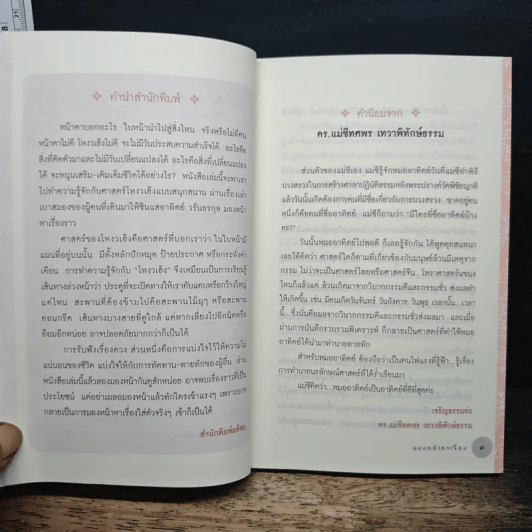 คำนำสำนักพิมพ์
หน้าตาบอกอะไร ใบหน้านำไปสู่สิ่งไหน จริงหรือไม่ที่คน
หน้าตาไม่ดี โหงวเฮ้งไม่ดี จะไม่มีวันประสบความสำเร็จได้ อะไรคือ
สิ่งที่ติดตัวมาและไม่มีวันเปลี่ยนแปลงได้ อะไรคือสิ่งที่เปลี่ยนแปลง
ได้ จะหนุนเสริม-เติมเต็มชีวิตได้อย่างไร? หนังสือเล่มนี้จะพาเรา
ไปทำความรู้จักกับศาสตร์โหงวเฮ้งแบบสนุกสนาน ผ่านเรื่องเล่า
เบาสมองของผู้คนที่เดินมาให้ซินแสอาทิตย์ วรันธรกุล มองหน้า
หาเรื่องราว
ศาสตร์ของโหงวเฮ้งคือศาสตร์ที่บอกเราว่า ในใบหน้ามี
แผนที่อยู่บนนั้น มีทั้งหลักปักหมุด ป้ายประกาศ หรือกระทั่งคำ
เตือน การทำความรู้จักกับ "โหงวเฮ้ง" จึงเหมือนเป็นการเรียนรู้
เส้นทางล่วงหน้าว่า ประตูที่จะเปิดออกไปทางให้เราคับแคบหรือกว้างใหญ่
แค่ไหน สะพานที่ต้องข้ามไปคือสะพานไม้ผุๆ หรือสะพาน
คอนกรีต เส้นทางบางสายที่ดูใกล้ แต่หากเลี่ยงไปอีกนิดหรือ
อ้อมอีกหน่อย อาจปลอดภัยมากกว่าก็เป็นได้
การรับฟังเรื่องดวง ส่วนหนึ่งคือการแบ่งใจไว้ให้ความไม่
แน่นอนของชีวิต แบ่งใจไว้ให้กับการทัดทาน-ทายทักของผู้อื่น อ่าน
หนังสือเล่มนี้แล้วลองมองหน้ากันดูสักหน่อย อาจพบเรื่องราวที่เป็น
ประโยชน์ แต่อย่าเผลอมองหน้าแล้วทักใครเข้าแรงๆ เพราะอาจ
กลายเป็นการมองหน้าหาเรื่องใส่ตัวจริงๆ เข้าก็เป็นได้
สำนักพิมพ์มติชน
คำนิยมจาก
ดร.แม่ชีทศพร เทวาพิทักษ์ธรรม
ส่วนตัวของแม่ชีเอง แม่ชีรู้จักหมออาทิตย์วันที่แม่ชีทำพิธี
บวงสรวงในการสร้างศาลาปฏิบัติธรรมหลังพระปรางค์วัดพิชัยญาติ
แล้ววันนั้นเกิดต้องการคนที่มีชื่อเกี่ยวกับการบวงสรวง ขาดอยู่คน
หนึ่งก็คือคนที่ชื่ออาทิตย์ แม่ชีก็ถามว่า "มีใครที่ชื่ออาทิตย์บ้าง
คะ?"
วันนั้นหมออาทิตย์ไปพอดี ก็เลยรู้จักกัน ได้พูดคุยสนทนา
เลยได้คิดว่า ศาสตร์ใดก็ตามที่เกี่ยวข้องกับมนุษย์ล้วนมีเหตุจาก
กรรม ไม่ว่าจะเป็นศาสตร์ไทย หรือศาสตร์จีน โหราศาสตร์แขนง
ไหนก็แล้วแต่ ล้วนเกิดมาจากวิบากกรรมดีและกรรมชั่ว ส่งผลทำ
ให้เกิดขึ้น เช่น มีคนเกิดวันจันทร์ วันอังคาร วันพุธ เวลานั้น...เวลา
นี้...ซึ่งนั่นคือผลจากวิบากกรรมดีและกรรมชั่วส่งผลมา และเมื่อ
ผ่านการบันทึกรวบรวมพิเคราะห์ ก็กลายเป็นศาสตร์ที่ทำให้หมอ
อาทิตย์ได้นำมาทำนายทายทัก
สำหรับหมออาทิตย์ ต้องถือว่าเป็นคนไฟแรงที่รู้ฟ้า...รู้เรื่อง
การทำนายนรลักษณ์ศาสตร์ที่ได้ร่ำเรียนมา
แม่ชีคิดว่า...หมออาทิตย์เป็นอาทิตย์ที่ดีที่สุดค่ะ
เจริญธรรมค่ะ
ดร.แม่ชีทศพร เทวาพิทักษ์ธรรม
มองหน้าหาเรื่อง